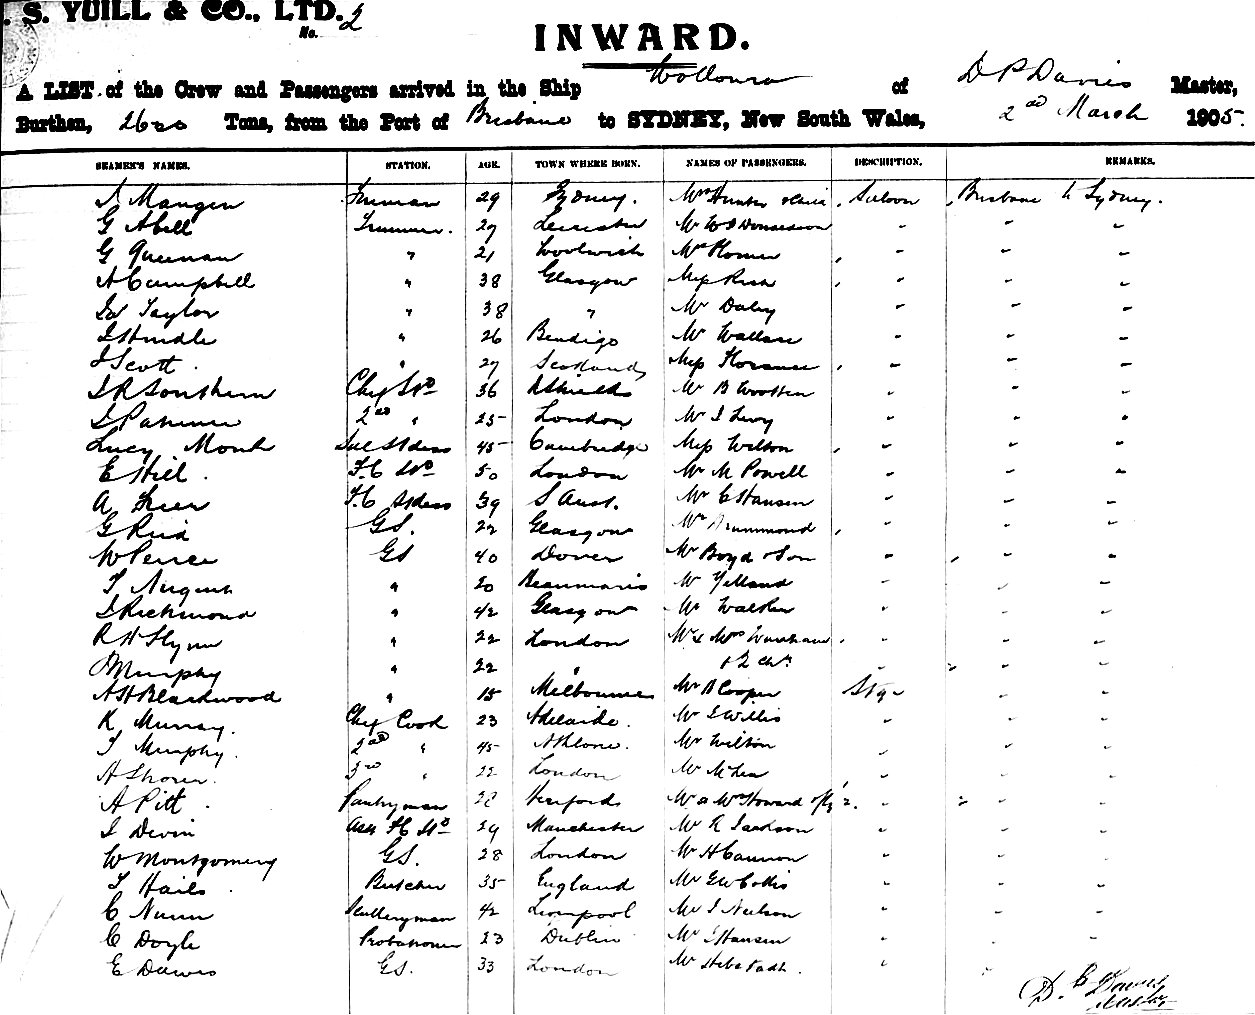 . S. YUILL & CO., LTD.
No. 2
INWARD.
A LIST of the Crew and Passengers arrived in the Ship Wollowra of D P Davies Master,
Burthen, 2600 Tons, from the Port of Brisbane to SYDNEY, New South Wales, 2nd March 1905.
SEAMEN'S NAMES. STATION. AGE. TOWN WHERE BORN. NAMES OF PASSENGERS. DESCRIPTION. REMARKS.
Mangen Fireman 29 Sydney. Mrs Hunter Saloon Brisbane to Sydney.
G Abell Trimmer. 27 Leicester Mr
G " 21 Woolwich
A Campbell " 38 Glasgow Miss Rich
Taylor " 38 " Mr Daley
Hindle " 26 Bendigo Mr Wallace
J Scott. " 27 Scotland Miss Florance
Southern Chief Std 36 N Shields Mr B Wootten
2nd " 25 London Mr Levy
Lucy Monk Sal Stdess 45 Cambridge Miss Wilson
E Hill. F.C Std 50 London Mr M Powell
A Freer F.C Stdess 39 S Aust. Mr C Hansen
G Reid GS. 22 Glasgow Drummond
W Peirce GS 40 Dover Mr Boyd & Son
T Nugent " 20 Beaumaris Mr Yelland
Richmond " 42 Glasgow Mr Walker
R H Flynn " 22 London Mr & Mrs
Murphy " 22 " & 2 chn
A H Blackwood " 15 Melbourne Mr Cooper Stge
K Murray. Chief Cook 23 Adelaide. Mr Willis
T Murphy. 2nd " 45 Athlone. Mr Wilton
A 3rd " 22 London Mr McLea
A Pitt. Pantryman 28 Hereford Mr & Mrs Howard
J Devin Asst FC Std 29 Manchester Mr Jackson
W Montgomery GS. 28 London Mr H Cannon
T Hails. Butcher 35 England Mr G W Collis
C Nunn Sculleryman 42 Liverpool Mr J Neilson
C Doyle Probationer 23 Dublin Mr Hansen
E Davies GS. 33 London Mr
D. P Davies
Master